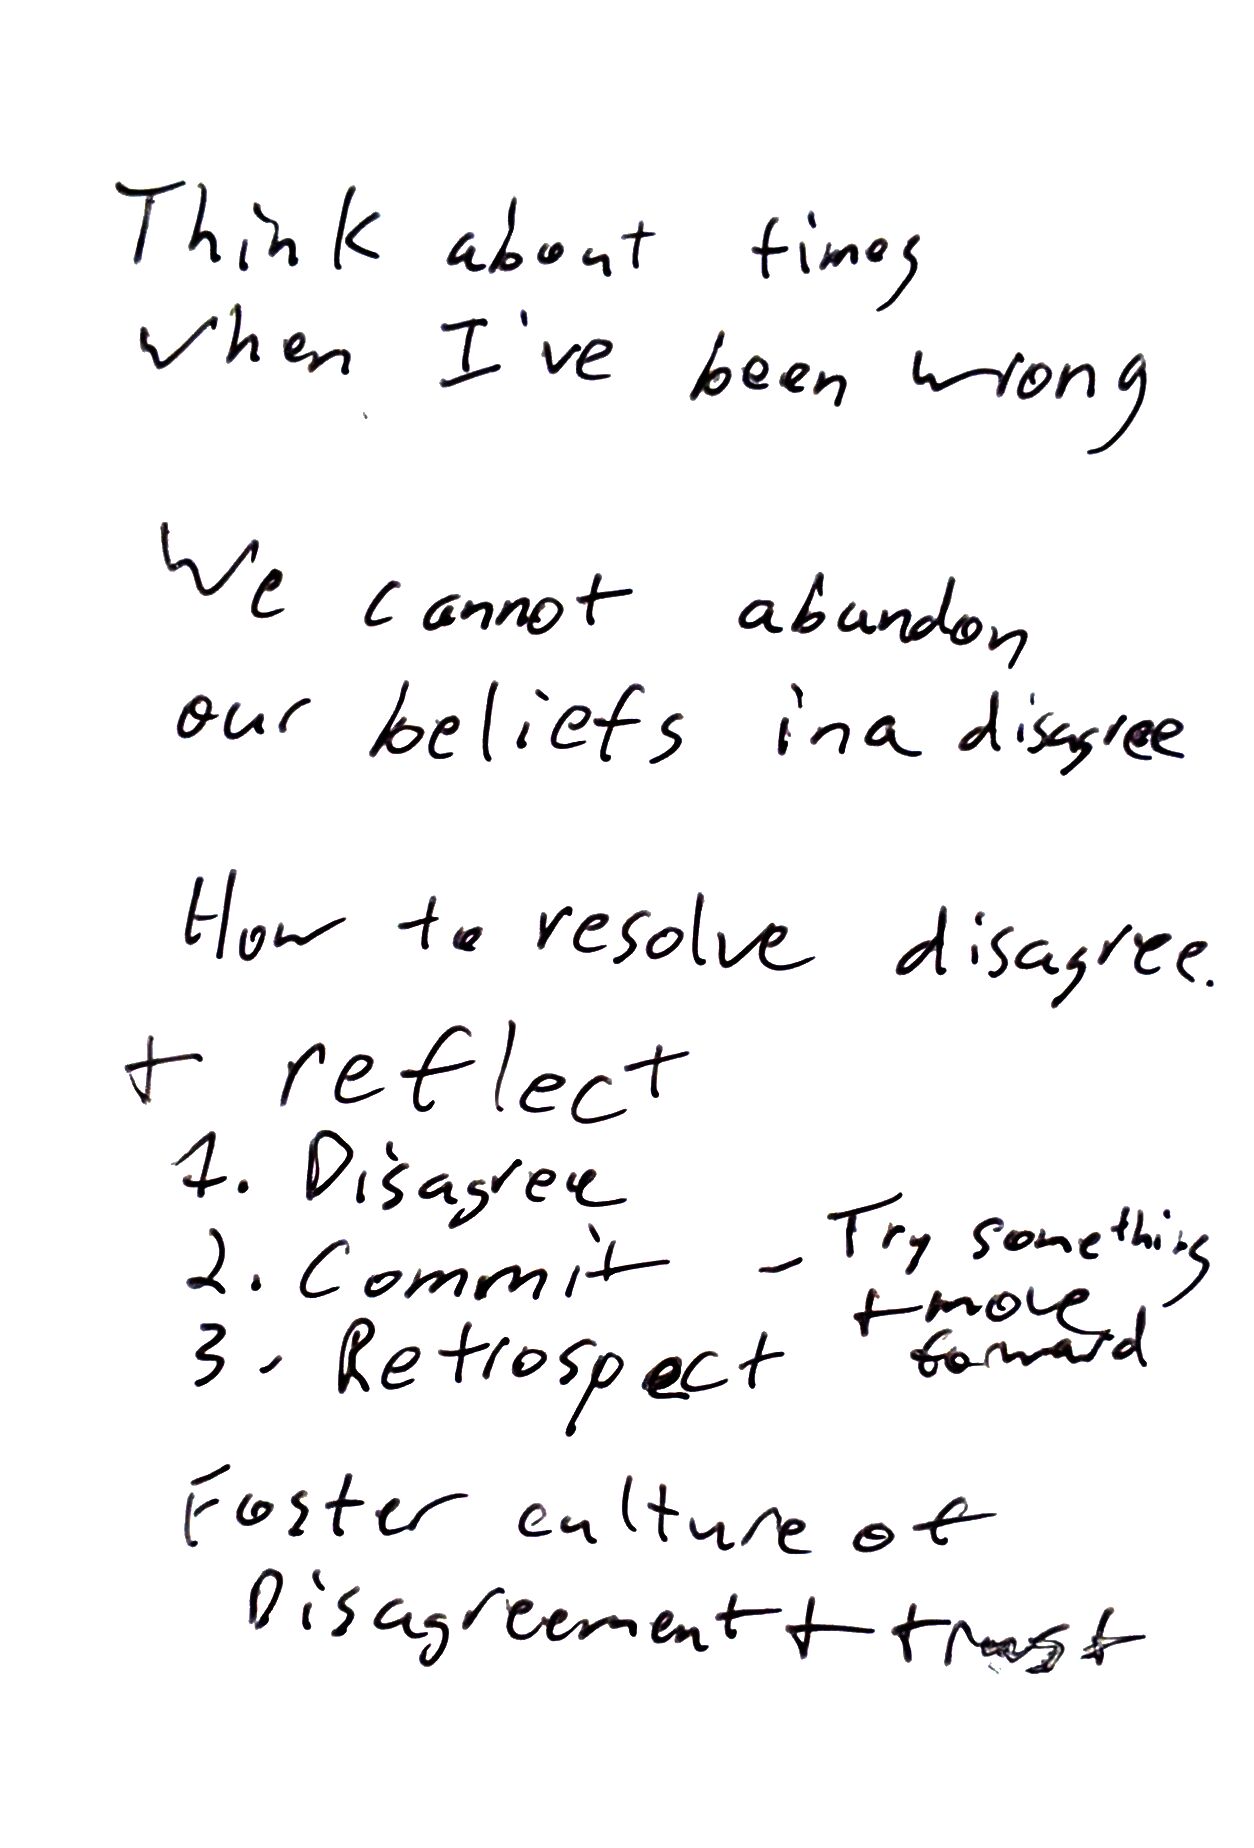 Think about times
when I've been wrong
We cannot abandon
our beliefs in a disagree
How to resolve disagree.
+ reflect
1. Disagree
2. Commit - Try something
+ move
forward
3. Retrospect
Foster culture of
Disagreement + trust